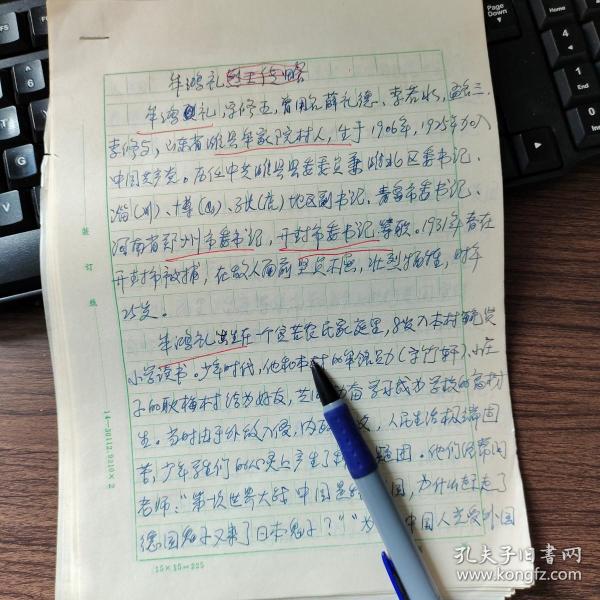 牟鸿礼烈士传略
牟鸿礼,字修五,曾用名薛礼德、李若水、孟名三、
李修与,山东省潍县牟家院村人,生于1906年,1925年加入
中国共产党。历任中共潍县县委委员兼潍北区委书记、
淄(川)、博(山)、张(店)地区副书记、青岛市委书记、
河南省郑州市委书记,开封市委书记等职。1931年春在
开封市被捕,在敌人面前坚贞不屈,壮烈牺牲,时年
25岁。
牟鸿礼出生在一个贫苦农民家庭里,8岁入本村
小学读书。少年时代,他和本村的牟
子的耿梅村结为好友,学习成为学校的高材
生。当时由于外敌入侵,人民生活极端困
苦,少年学生们的心灵上产生了 他们经常问
老师:“第一次世界大战中国是 国,为什么赶走了
德国鬼子又来了日本鬼子?”“为 中国人光受外国
装订线
14—30112.9210×2
15×15=225
孔夫子旧书网
www.kongfz.com
Page
Down
End
PgDn